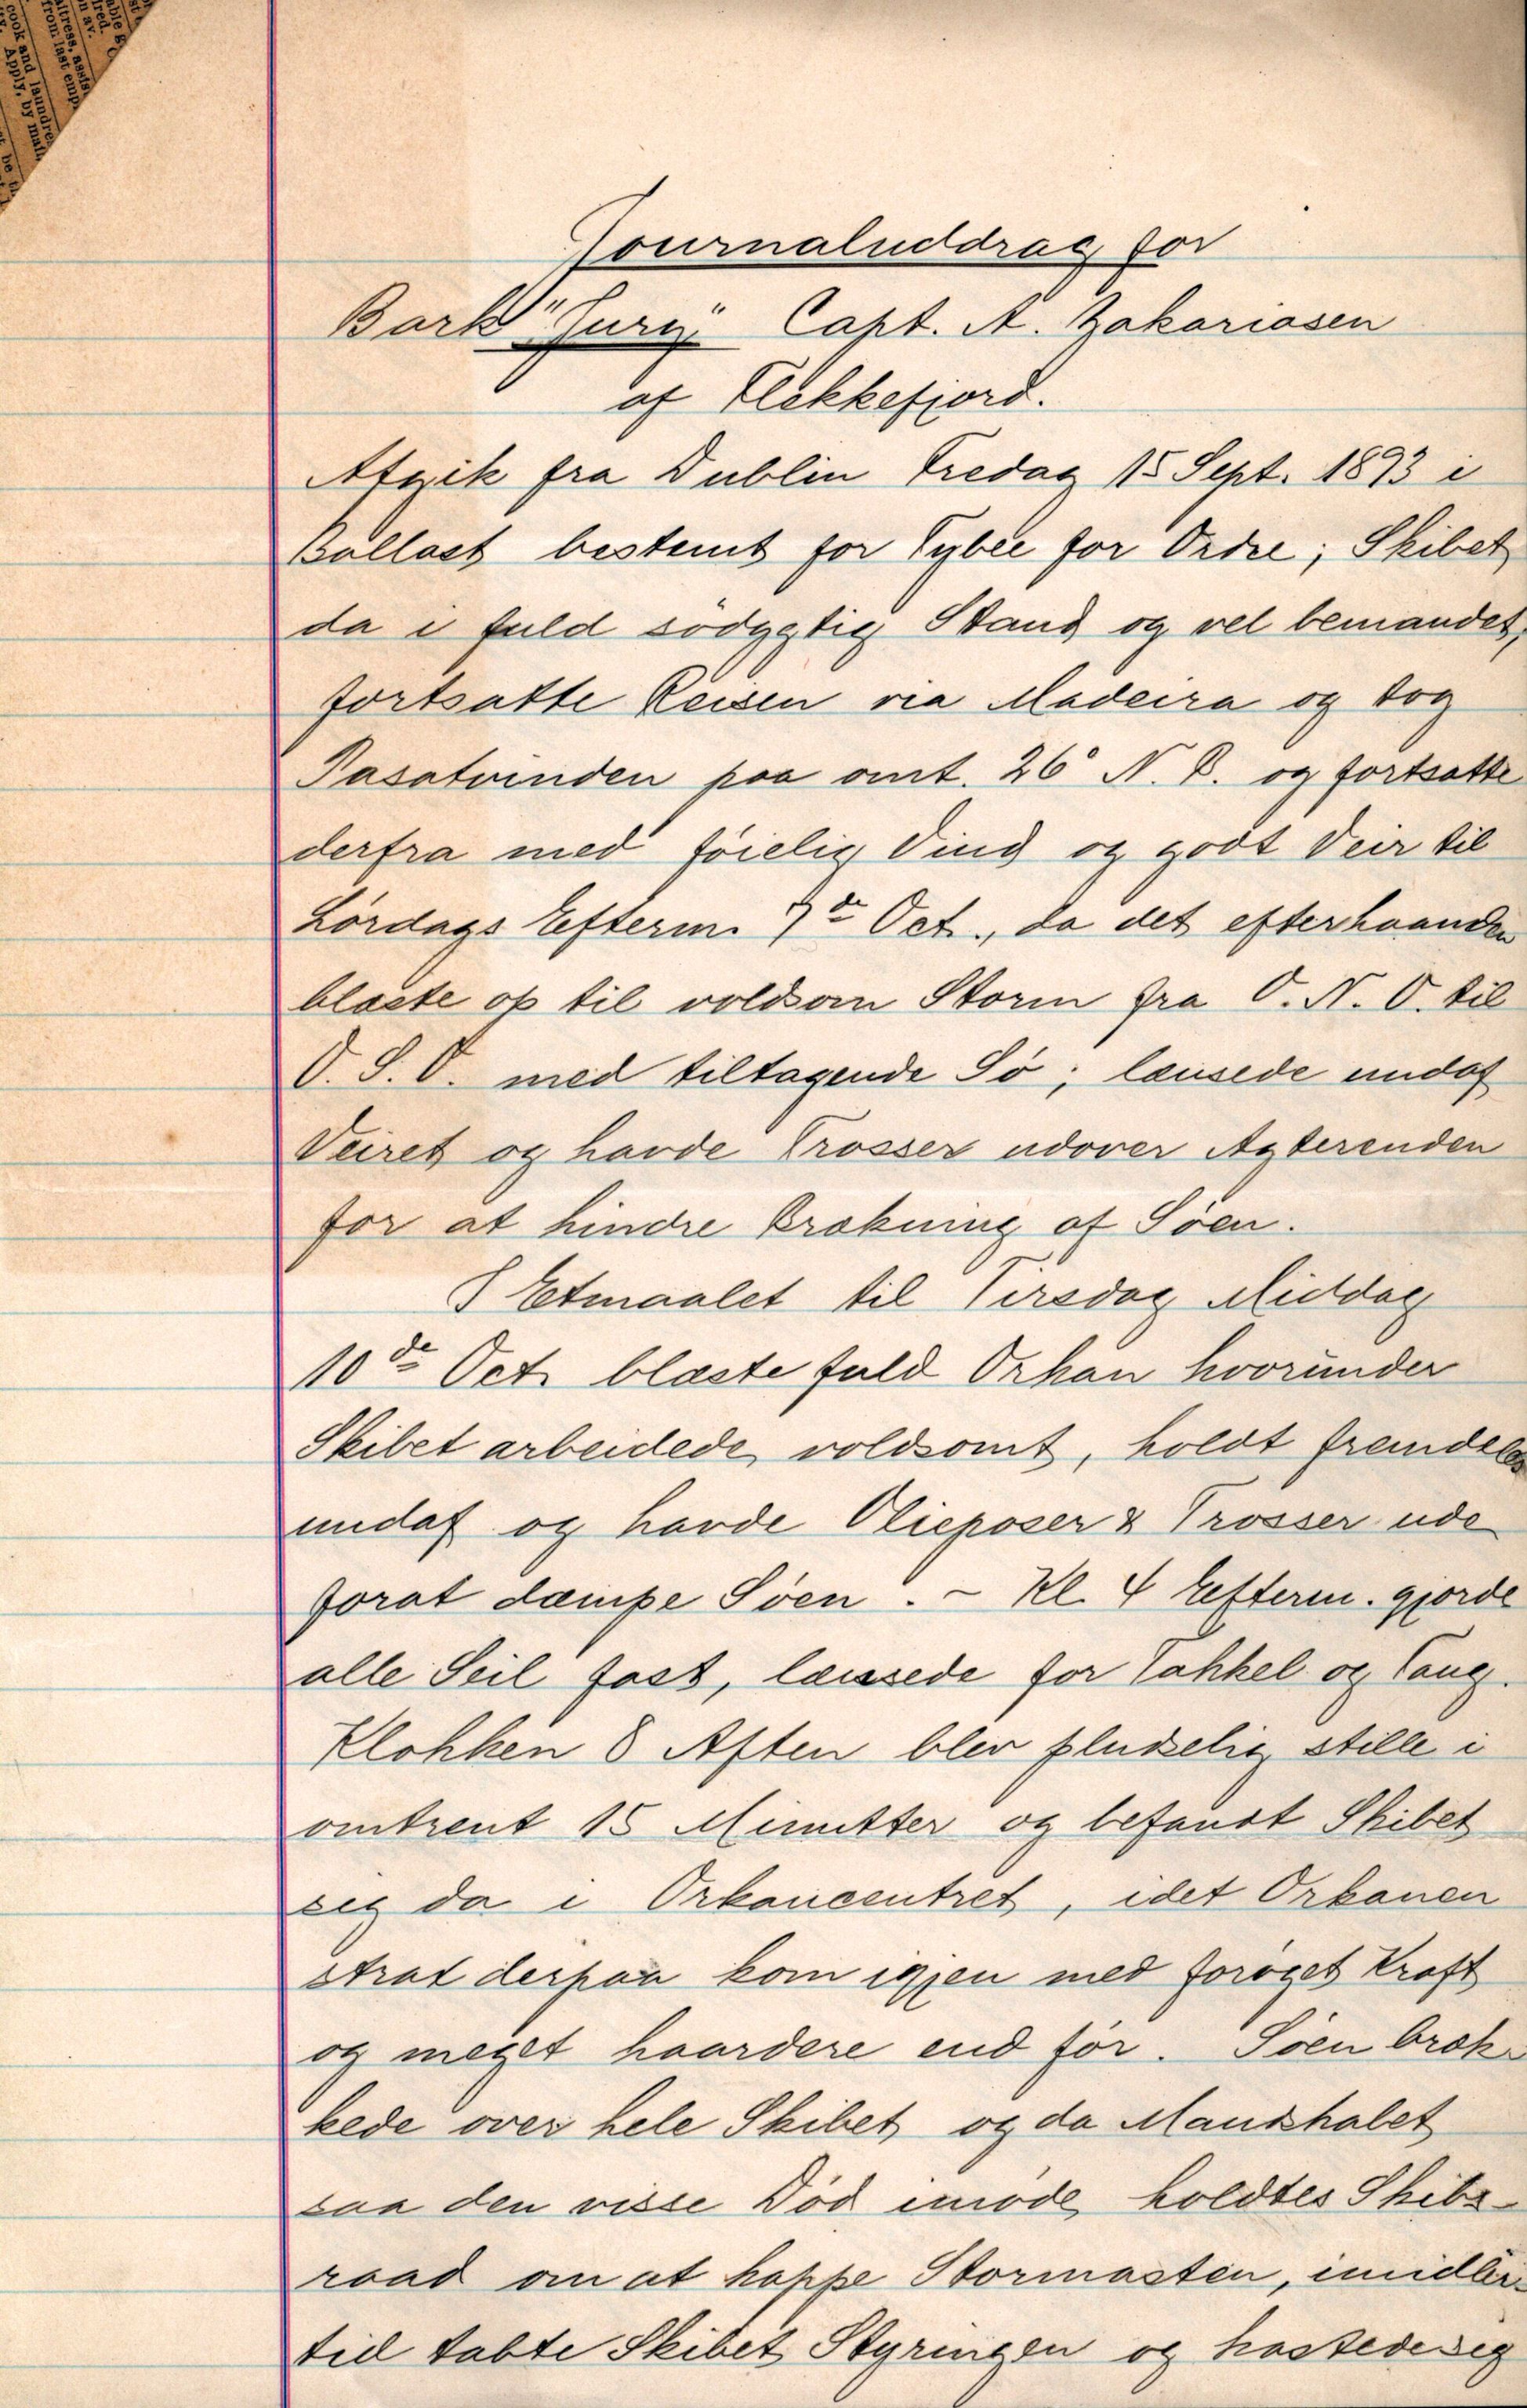 able g
ired.
n av.
aitress, assis
from last emp
cook and laundre
Apply, by mail
be
Journaluddrag for
Bark "Jury" Capt. A. Zakariasen
af Flekkefjord.
Afgik fra Dublin Fredag 15 Sept. 1893 i
Ballast bestemt for Tybee for Ordre; Skibet
da i fuld södygtig Stand og vel bemandet;
fortsatte Reisen via Madeira og tog
Pasatvinden paa omt. 26° N. B. og fortsatte
derfra med föielig Vind og godt Veir til
Lördags Efterm. 7de Oct., da det efterhaanden
blæste op til voldsom Storm fra O. N. O. til
O. S. O. med tiltagende Sö; lænsede undaf
Veiret og havde Trosser udover Agterenden
for at hindre Brækning af Söen.
I Etmaalet til Tirsdag Middag
10de Oct. blæste fuld Orkan hvorunder
Skibet arbeidede voldsomt, holdt fremdeles
undaf og havde Olieposer & Trosser ude
forat dæmpe Söen. - Kl. 4 Efterm. gjorde
alle Seil fast, lænsede for Takkel og Taug.
Klokken 8 Aften blev pludselig stille i
omtrent 15 Minutter og befandt Skibet
sig da i Orkancentret, idet Orkanen
strax derpaa kom igjen med foröget Kraft
og meget haardere end för. Söen bræk-
kede over hele Skibet og da Mandskabet
saa den visse Död imöde holdtes Skibs-
raad om at kappe Stormasten, imidler-
tid tabte Skibet Styringen og kastede sig